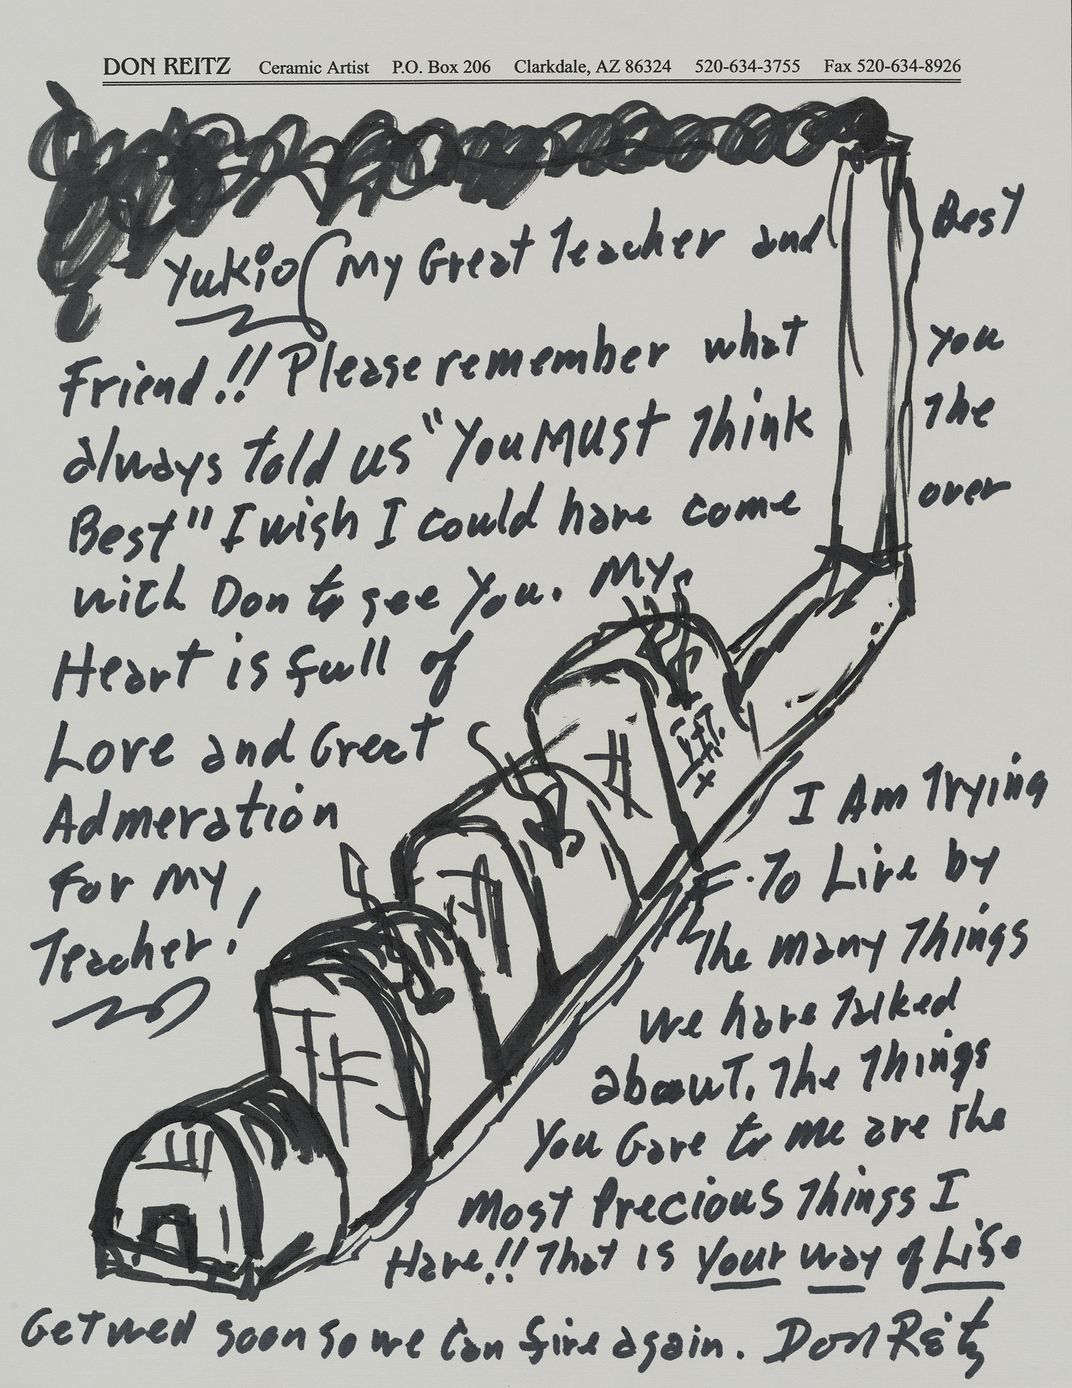 DON REITZ Ceramic Artist P.O. Box 206 Clarkdale, AZ 86324 520-634-3755 Fax 520-634-8926
Yukio My Great Teacher and Best
Friend!! Please remember what you
always told us "You MUST Think The
Best" I wish I could have come over
with Don to see You. My
Heart is full of
Love and Great
Admeration
For My
Teacher!
I Am Trying
To Live by
The many Things
we have Talked
about. The Things
You Gave to me are The
Most Precious Things I
Have!! That is Your way of Life
Get well soon so we Can fire again. Don Reitz